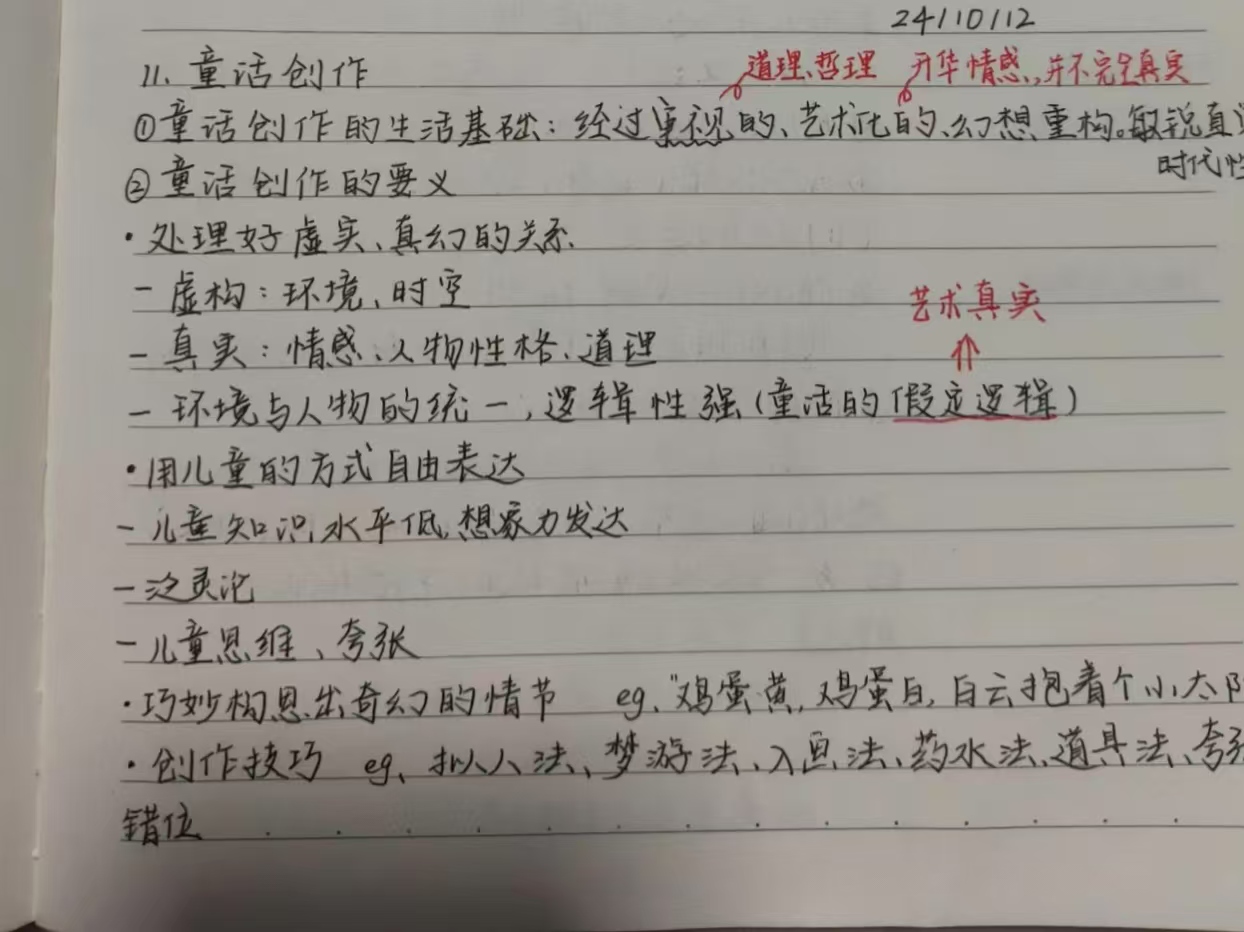 24/10/12
道理、哲理 升华情感,并不完全真实
11. 童话创作
①童话创作的生活基础:经过审视的、艺术化的、幻想重构。敏锐直
时代性
②童话创作的要义
·处理好虚实、真幻的关系.
- 虚构:环境、时空
艺术真实
- 真实:情感、人物性格、道理
⇑
- 环境与人物的统一,逻辑性强(童话的假定逻辑)
·用儿童的方式自由表达
- 儿童知识水平低,想象力发达
- 泛灵论
- 儿童思维、夸张
·巧妙构思出奇幻的情节 eg."鸡蛋黄,鸡蛋白,白云抱着个小太阳
·创作技巧 eg、拟人法、梦游法、入画法、药水法、道具法、夸张
错位